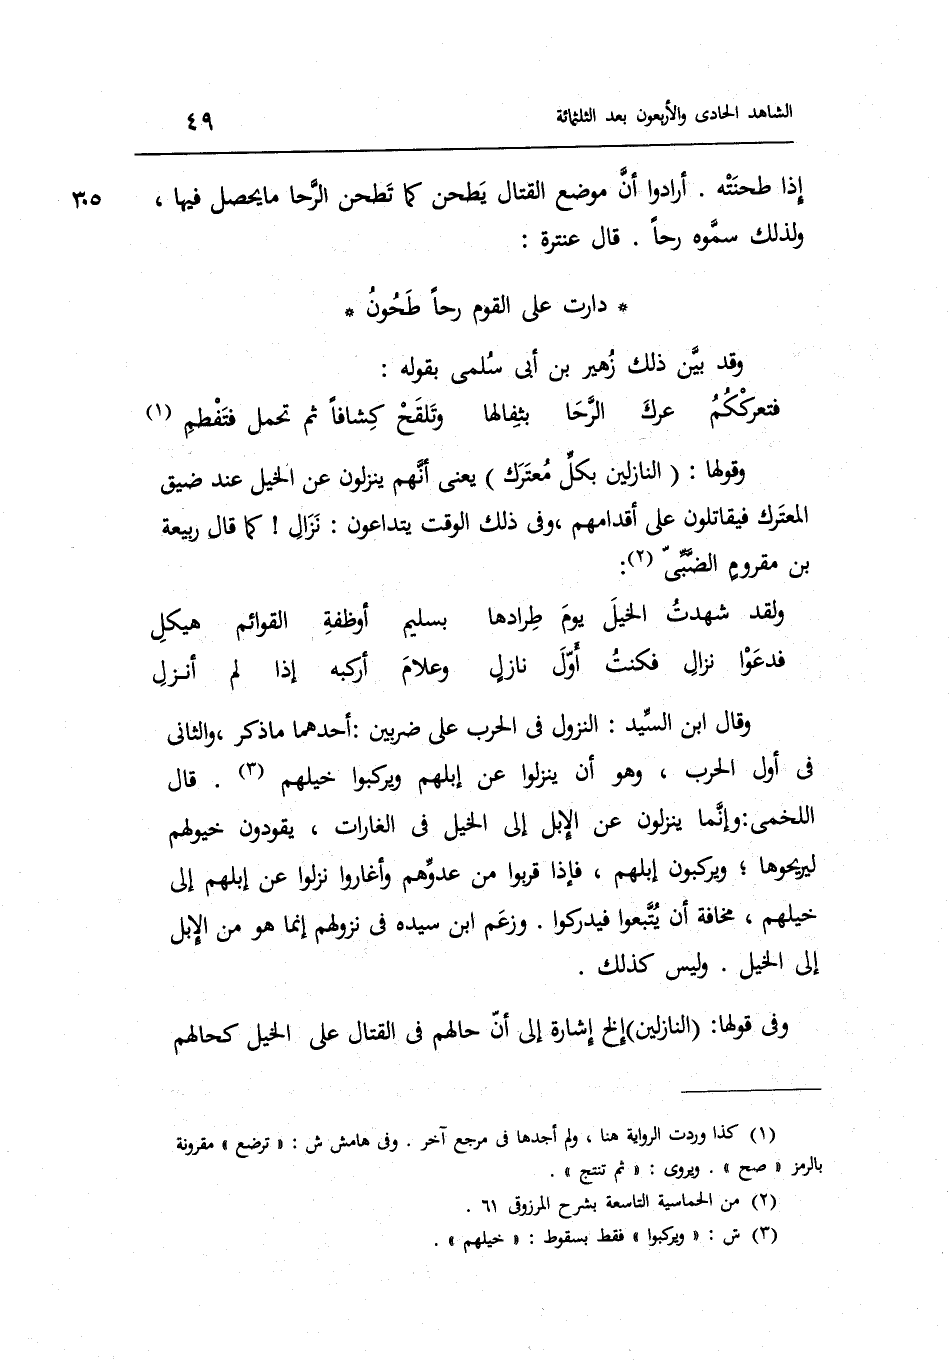 الشاهد الحادى والأربعون بعد الثلثمائة ٤٩
إذا طحنَتْه . أرادوا أنَّ موضع القتال يَطحن كما تَطحن الرَّحا مايحصل فيها ، ٣٠٥
ولذلك سمَّوه رحاً . قال عنترة :
* دارت على القوم رحاً طَحُونُ *
وقد بيَّن ذلك زُهير بن أبى سُلمى بقوله :
فتعركْكُمُ عركَ الرَّحَا بثِفالها وتَلقَحْ كِشافاً ثم تحمل فتَفْطمِ (١)
وقولها : ( النازلين بكلِّ مُعتَرَك ) يعنى أنَّهم ينزلون عن الخيل عند ضيق
المعتَرك فيقاتلون على أقدامهم ،وفى ذلك الوقت يتداعون : نَزَالِ ! كما قال ربيعة
بن مقرومٍ الضَّبِّىّ (٢):
ولقد شهدتُ الخيلَ يومَ طِرادها بسليم أوظفةِ القوائم هيكلِ
فدعَوْا نزالِ فكنتُ أَوّلَ نازلٍ وعلامَ أركبه إذا لم أنــزلِ
وقال ابن السِّيد : النزول فى الحرب على ضربين :أحدهما ماذكر ،والثانى
فى أول الحرب ، وهو أن ينزلوا عن إبلهم ويركبوا خيلهم (٣) . قال
اللخمى:وإنَّما ينزلون عن الإبل إلى الخيل فى الغارات ، يقودون خيولهم
ليريحوها ؛ ويركبون إبلهم ، فإذا قربوا من عدوِّهم وأغاروا نزلوا عن إبلهم إلى
خيلهم ، مخافة أن يُتَّبعوا فيدركوا . وزعَم ابن سيده فى نزولهم إنما هو من الإبل
إلى الخيل . وليس كذلك .
وفى قولها: (النازلين)إلخ إشارة إلى أنّ حالهم فى القتال على الخيل كحالهم
(١) كذا وردت الرواية هنا ، ولم أجدها فى مرجع آخر . وفى هامش ش : « ترضع » مقرونة
بالرمز « صح » . ويروى : « ثم تنتج » .
(٢) من الحماسية التاسعة بشرح المرزوقى ٦١ .
(٣) ش : « ويركبوا » فقط بسقوط : « خيلهم » .